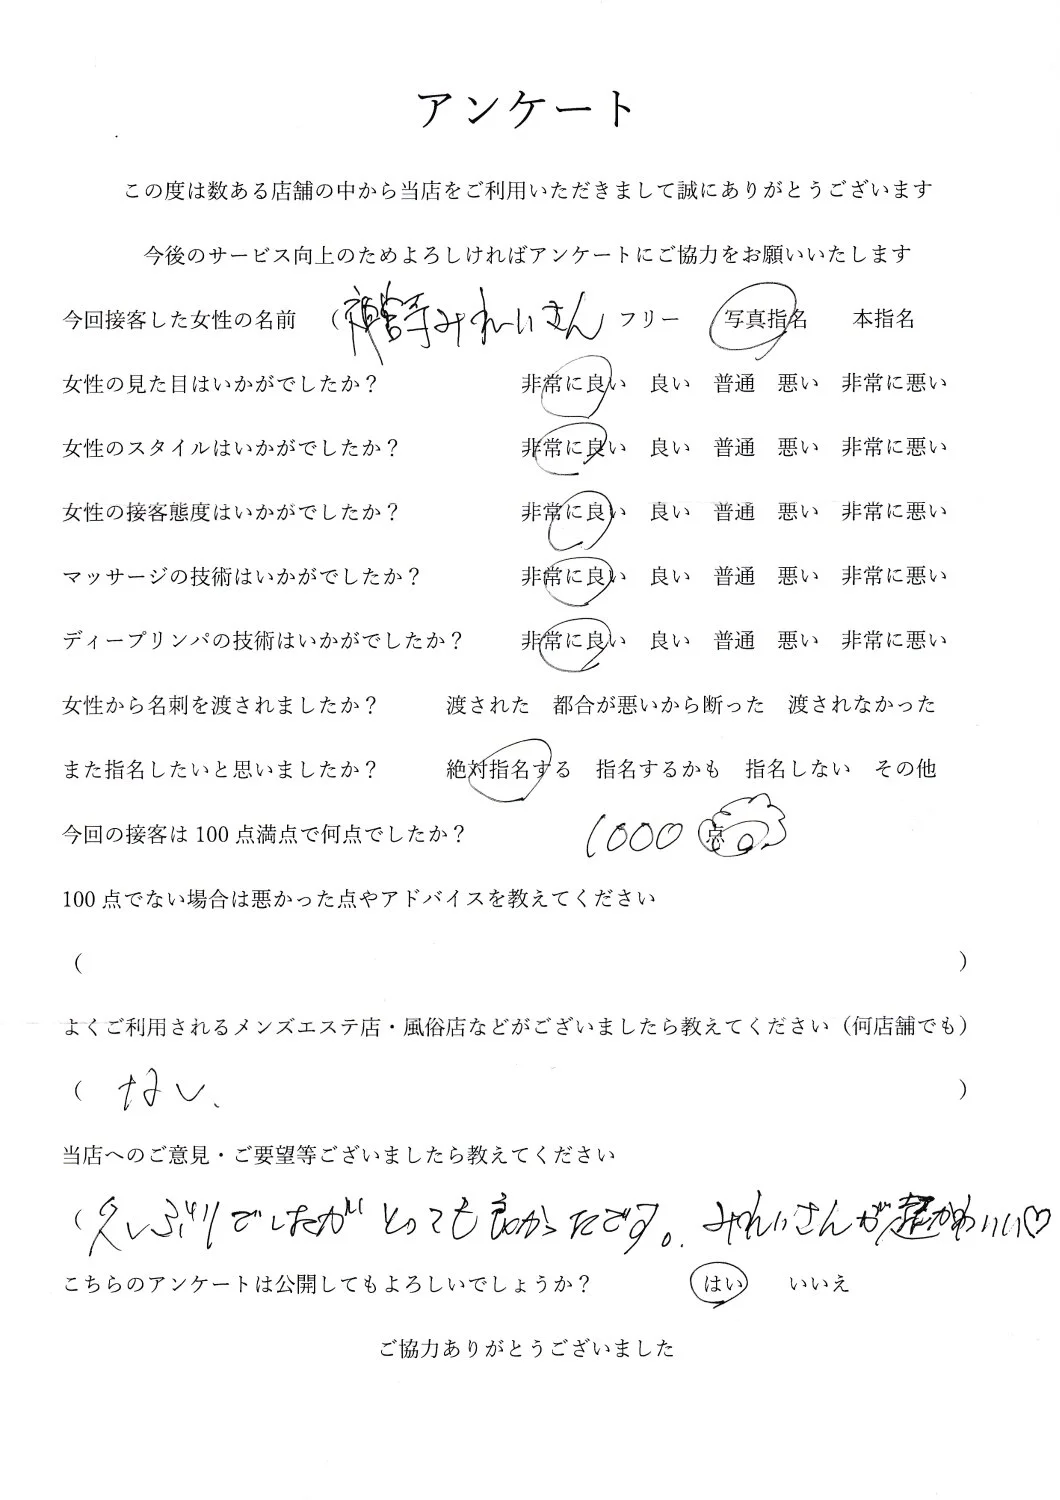 アンケート
この度は数ある店舗の中から当店をご利用いただきまして誠にありがとうございます
今後のサービス向上のためよろしければアンケートにご協力をお願いいたします
今回接客した女性の名前 （神宮寺みれいさん フリー 写真指名 本指名
女性の見た目はいかがでしたか？ 非常に良い 良い 普通 悪い 非常に悪い
女性のスタイルはいかがでしたか？ 非常に良い 良い 普通 悪い 非常に悪い
女性の接客態度はいかがでしたか？ 非常に良い 良い 普通 悪い 非常に悪い
マッサージの技術はいかがでしたか？ 非常に良い 良い 普通 悪い 非常に悪い
ディープリンパの技術はいかがでしたか？ 非常に良い 良い 普通 悪い 非常に悪い
女性から名刺を渡されましたか？ 渡された 都合が悪いから断った 渡されなかった
また指名したいと思いましたか？ 絶対指名する 指名するかも 指名しない その他
今回の接客は 100 点満点で何点でしたか？ 1000 点
100 点でない場合は悪かった点やアドバイスを教えてください
（ ）
よくご利用されるメンズエステ店・風俗店などがございましたら教えてください（何店舗でも）
（ ない、 ）
当店へのご意見・ご要望等ございましたら教えてください
（久しぶりでしたが とっても良かったです。みれいさんが超かわいい♡
こちらのアンケートは公開してもよろしいでしょうか？ はい いいえ
ご協力ありがとうございました